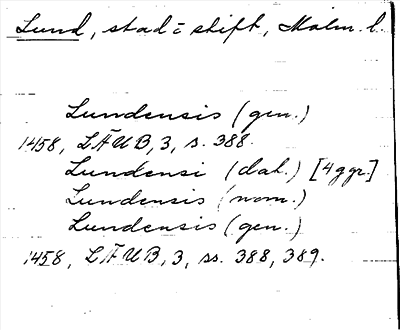 Lund, stad o. stift, Malm. l.
Lundensis (gen.)
1458, LÄUB, 3, s. 388.
Lundensi (dat.) [4 ggr.]
Lundensis (nom.)
Lundensis (gen.)
1458, LÄUB, 3, ss. 388, 389.